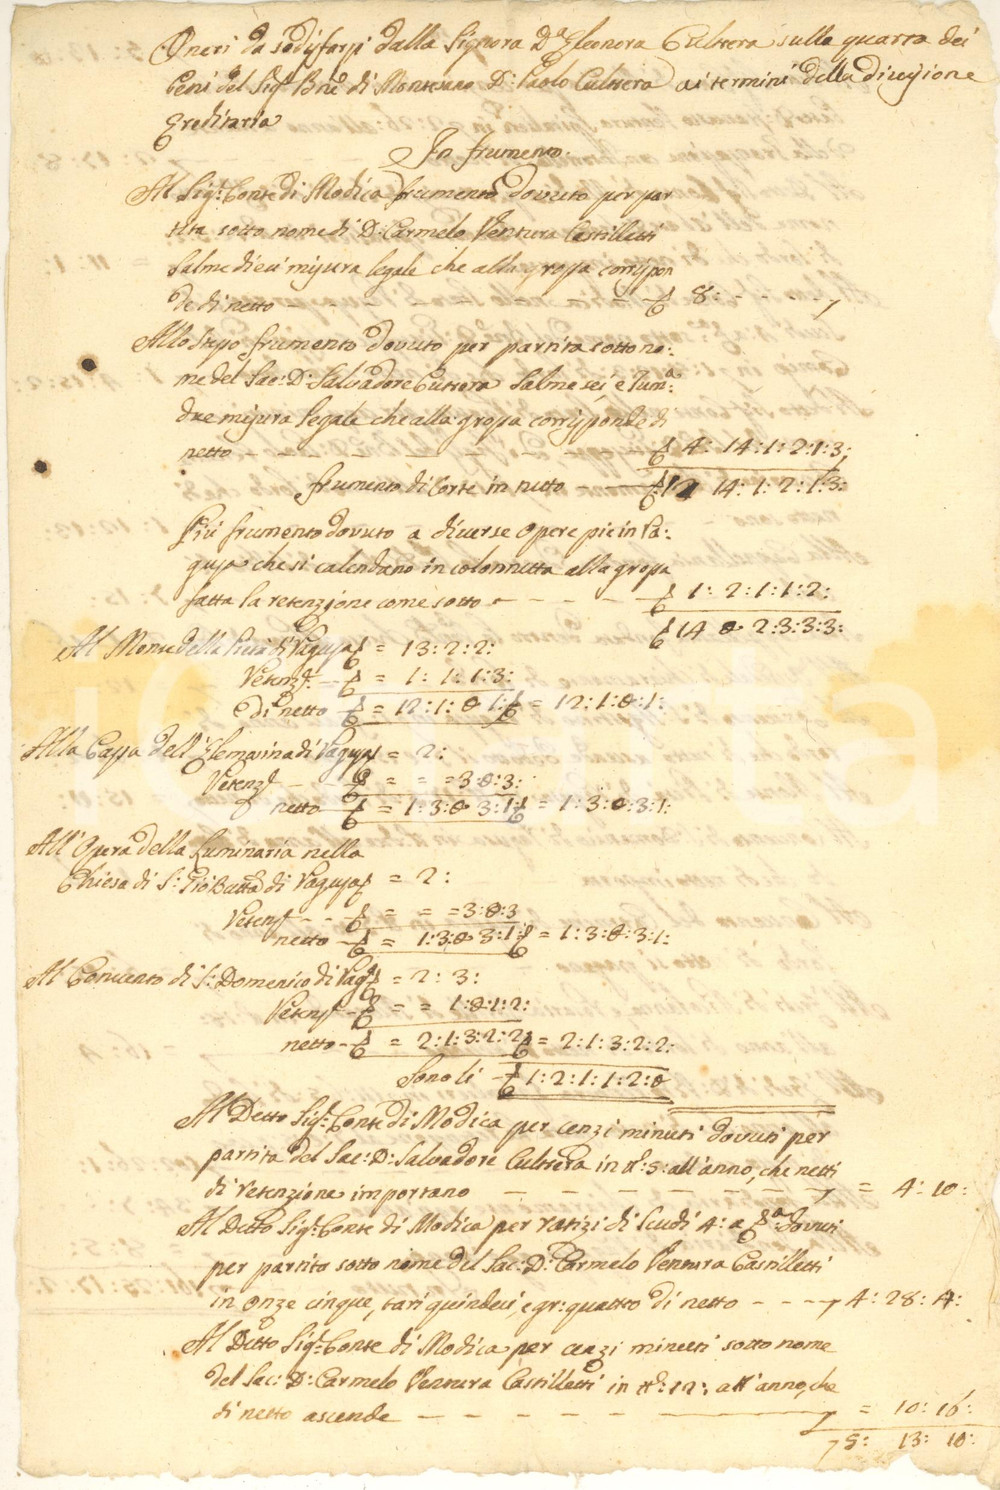 Oneri da sodisfarsi dalla Signora D.ª Eleonora Cultrera sulla quarta dei
beni del Sig.r Bne di Montesano D: Paolo Cultrera ai termini della divisione
Ereditaria
In frumento.
Al Sig.r Conte di Modica frumento dovuto per par
tita sotto nome di D: Carmelo Ventura Castilletti
Salme dieci misura legale che alla grossa corrispon
de di netto - - - 8: - - -
Allo stesso frumento dovuto per partita sotto no:
me del Sac: D: Salvadore Cultrera Salme sei, e Tum.a
due misura legale che alla grossa corrisponde di
netto - - - 4: 14: 1: 2: 1: 3:
frumento di Corte in netto - - 12 14: 1: 2: 1: 3:
Più frumento dovuto a diverse opere pie in Ra:
gusa che si calendano in colonnetta alla grossa
fatta la retenzione come sotto - - - 1: 2: 1: 1: 2:
14 0 2: 3: 3: 3:
Al Monte della Pietà di Ragusa = 13: 2: 2:
Retenz.e - - = 1: 1: 1: 3:
e di netto - = 12: 1: 0 1: = 12: 1: 0: 1:
Alla Cassa dell'Elemosina di Ragusa = 2:
Retenz.e - - = = = 3: 0: 3:
netto - = 1: 3: 0 3: 1: = 1: 3: 0: 3: 1:
All'Opera della Luminaria nella
Chiesa di S: Gio Batta di Ragusa = 2:
Retenz.e - - = = = 3: 0: 3
netto - = 1: 3: 0 3: 1: = 1: 3: 0: 3: 1:
Al Convento di S: Domenico di Rag.a = 2: 3:
Retenz.e - = = 1: 0: 1: 2:
netto - = 2: 1: 3: 2: 2: = 2: 1: 3: 2: 2:
Sono li - 1: 2: 1: 1: 2: 0
Al Detto Sig.r Conte di Modica per cenzi minuti dovuti per
partita del Sac: D: Salvadore Cultrera in tt: 5: all'anno, che netti
di retenzione importano - - - = 4: 10:
Al Detto Sig.r Conte di Modica per ratizi di Scudi 4: a dovuti
per partita sotto nome del Sac: D: Carmelo Ventura Castilletti
in onze cinque, tarì quindeci, e gr: quattro di netto - - - 4: 28: 4:
Al Detto Sig.r Conte di Modica per cenzi minuti sotto nome
del Sac: D: Carmelo Ventura Castilletti in tt: 12: all'anno, che
di netto ascende - - - = 10: 16:
5: 13: 10: